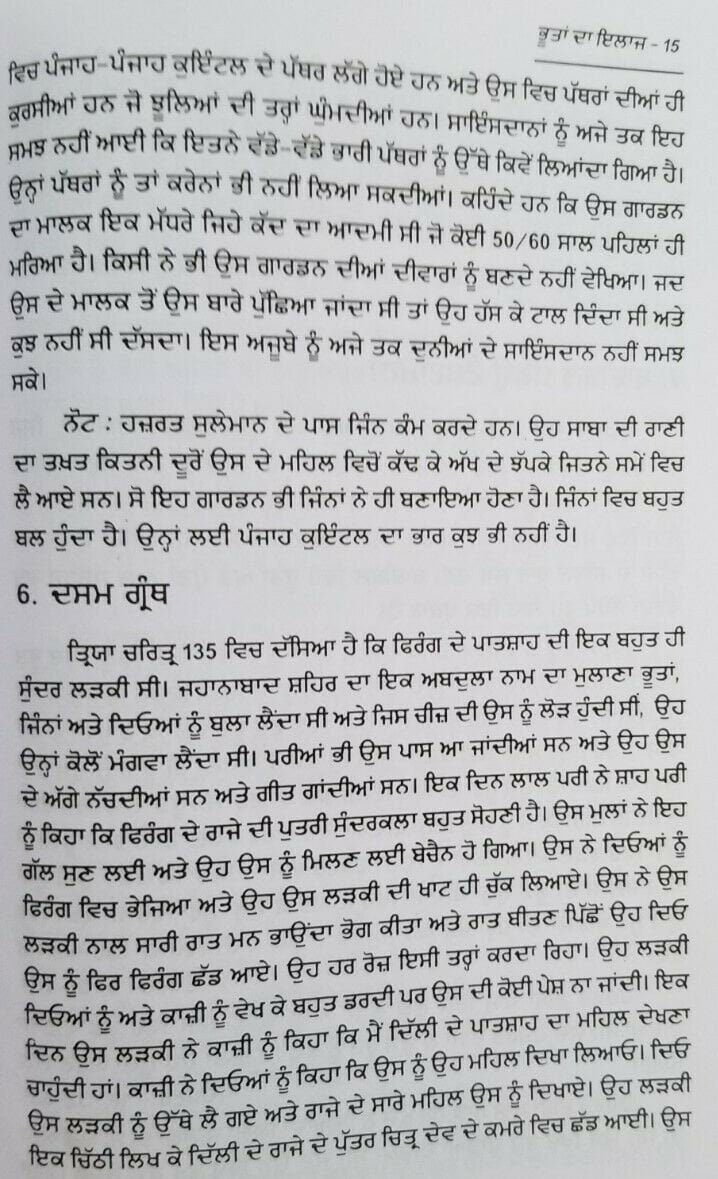 ਭੂਤਾਂ ਦਾ ਇਲਾਜ - 15
ਵਿਚ ਪੰਜਾਹ-ਪੰਜਾਹ ਕੁਇੰਟਲ ਦੇ ਪੱਥਰ ਲੱਗੇ ਹੋਏ ਹਨ ਅਤੇ ਉਸ ਵਿਚ ਪੱਥਰਾਂ ਦੀਆਂ ਹੀ
ਕੁਰਸੀਆਂ ਹਨ ਜੋ ਝੂਲਿਆਂ ਦੀ ਤਰ੍ਹਾਂ ਘੁੰਮਦੀਆਂ ਹਨ। ਸਾਇੰਸਦਾਨਾਂ ਨੂੰ ਅਜੇ ਤਕ ਇਹ
ਸਮਝ ਨਹੀਂ ਆਈ ਕਿ ਇਤਨੇ ਵੱਡੇ-ਵੱਡੇ ਭਾਰੀ ਪੱਥਰਾਂ ਨੂੰ ਉੱਥੇ ਕਿਵੇਂ ਲਿਆਂਦਾ ਗਿਆ ਹੈ।
ਉਨ੍ਹਾਂ ਪੱਥਰਾਂ ਨੂੰ ਤਾਂ ਕਰੇਨਾਂ ਭੀ ਨਹੀਂ ਲਿਆ ਸਕਦੀਆਂ। ਕਹਿੰਦੇ ਹਨ ਕਿ ਉਸ ਗਾਰਡਨ
ਦਾ ਮਾਲਕ ਇਕ ਮੱਧਰੇ ਜਿਹੇ ਕੱਦ ਦਾ ਆਦਮੀ ਸੀ ਜੋ ਕੋਈ 50/60 ਸਾਲ ਪਹਿਲਾਂ ਹੀ
ਮਰਿਆ ਹੈ। ਕਿਸੀ ਨੇ ਭੀ ਉਸ ਗਾਰਡਨ ਦੀਆਂ ਦੀਵਾਰਾਂ ਨੂੰ ਬਣਦੇ ਨਹੀਂ ਵੇਖਿਆ। ਜਦ
ਉਸ ਦੇ ਮਾਲਕ ਤੋਂ ਉਸ ਬਾਰੇ ਪੁੱਛਿਆ ਜਾਂਦਾ ਸੀ ਤਾਂ ਉਹ ਹੱਸ ਕੇ ਟਾਲ ਦਿੰਦਾ ਸੀ ਅਤੇ
ਕੁਝ ਨਹੀਂ ਸੀ ਦੱਸਦਾ। ਇਸ ਅਜੂਬੇ ਨੂੰ ਅਜੇ ਤਕ ਦੁਨੀਆਂ ਦੇ ਸਾਇੰਸਦਾਨ ਨਹੀਂ ਸਮਝ
ਸਕੇ।
ਨੋਟ : ਹਜ਼ਰਤ ਸੁਲੇਮਾਨ ਦੇ ਪਾਸ ਜਿੰਨ ਕੰਮ ਕਰਦੇ ਹਨ। ਉਹ ਸਾਬਾ ਦੀ ਰਾਣੀ
ਦਾ ਤਖ਼ਤ ਕਿਤਨੀ ਦੂਰੋਂ ਉਸ ਦੇ ਮਹਿਲ ਵਿਚੋਂ ਕੱਢ ਕੇ ਅੱਖ ਦੇ ਝੱਪਕੇ ਜਿਤਨੇ ਸਮੇਂ ਵਿਚ
ਲੈ ਆਏ ਸਨ। ਸੋ ਇਹ ਗਾਰਡਨ ਭੀ ਜਿੰਨਾਂ ਨੇ ਹੀ ਬਣਾਇਆ ਹੋਣਾ ਹੈ। ਜਿੰਨਾਂ ਵਿਚ ਬਹੁਤ
ਬਲ ਹੁੰਦਾ ਹੈ। ਉਨ੍ਹਾਂ ਲਈ ਪੰਜਾਹ ਕੁਇੰਟਲ ਦਾ ਭਾਰ ਕੁਝ ਭੀ ਨਹੀਂ ਹੈ।
6. ਦਸਮ ਗ੍ਰੰਥ
ਤ੍ਰਿਯਾ ਚਰਿਤ੍ਰ 135 ਵਿਚ ਦੱਸਿਆ ਹੈ ਕਿ ਫਿਰੰਗ ਦੇ ਪਾਤਸ਼ਾਹ ਦੀ ਇਕ ਬਹੁਤ ਹੀ
ਸੁੰਦਰ ਲੜਕੀ ਸੀ। ਜਹਾਨਾਬਾਦ ਸ਼ਹਿਰ ਦਾ ਇਕ ਅਬਦੁਲਾ ਨਾਮ ਦਾ ਮੁਲਾਣਾ ਭੂਤਾਂ,
ਜਿੰਨਾਂ ਅਤੇ ਦਿਓਆਂ ਨੂੰ ਬੁਲਾ ਲੈਂਦਾ ਸੀ ਅਤੇ ਜਿਸ ਚੀਜ਼ ਦੀ ਉਸ ਨੂੰ ਲੋੜ ਹੁੰਦੀ ਸੀਂ, ਉਹ
ਉਨ੍ਹਾਂ ਕੋਲੋਂ ਮੰਗਵਾ ਲੈਂਦਾ ਸੀ। ਪਰੀਆਂ ਭੀ ਉਸ ਪਾਸ ਆ ਜਾਂਦੀਆਂ ਸਨ ਅਤੇ ਉਹ ਉਸ
ਦੇ ਅੱਗੇ ਨੱਚਦੀਆਂ ਸਨ ਅਤੇ ਗੀਤ ਗਾਂਦੀਆਂ ਸਨ। ਇਕ ਦਿਨ ਲਾਲ ਪਰੀ ਨੇ ਸ਼ਾਹ ਪਰੀ
ਨੂੰ ਕਿਹਾ ਕਿ ਫਿਰੰਗ ਦੇ ਰਾਜੇ ਦੀ ਪੁਤਰੀ ਸੁੰਦਰਕਲਾ ਬਹੁਤ ਸੋਹਣੀ ਹੈ। ਉਸ ਮੁਲਾਂ ਨੇ ਇਹ
ਗੱਲ ਸੁਣ ਲਈ ਅਤੇ ਉਹ ਉਸ ਨੂੰ ਮਿਲਣ ਲਈ ਬੇਚੈਨ ਹੋ ਗਿਆ। ਉਸ ਨੇ ਦਿਓਆਂ ਨੂੰ
ਫਿਰੰਗ ਵਿਚ ਭੇਜਿਆ ਅਤੇ ਉਹ ਉਸ ਲੜਕੀ ਦੀ ਖਾਟ ਹੀ ਚੁੱਕ ਲਿਆਏ। ਉਸ ਨੇ ਉਸ
ਲੜਕੀ ਨਾਲ ਸਾਰੀ ਰਾਤ ਮਨ ਭਾਉਂਦਾ ਭੋਗ ਕੀਤਾ ਅਤੇ ਰਾਤ ਬੀਤਣ ਪਿੱਛੋਂ ਉਹ ਦਿਓ
ਉਸ ਨੂੰ ਫਿਰ ਫਿਰੰਗ ਛੱਡ ਆਏ। ਉਹ ਹਰ ਰੋਜ਼ ਇਸੀ ਤਰ੍ਹਾਂ ਕਰਦਾ ਰਿਹਾ। ਉਹ ਲੜਕੀ
ਦਿਓਆਂ ਨੂੰ ਅਤੇ ਕਾਜ਼ੀ ਨੂੰ ਵੇਖ ਕੇ ਬਹੁਤ ਡਰਦੀ ਪਰ ਉਸ ਦੀ ਕੋਈ ਪੇਸ਼ ਨਾ ਜਾਂਦੀ। ਇਕ
ਦਿਨ ਉਸ ਲੜਕੀ ਨੇ ਕਾਜ਼ੀ ਨੂੰ ਕਿਹਾ ਕਿ ਮੈਂ ਦਿੱਲੀ ਦੇ ਪਾਤਸ਼ਾਹ ਦਾ ਮਹਿਲ ਦੇਖਣਾ
ਚਾਹੁੰਦੀ ਹਾਂ। ਕਾਜ਼ੀ ਨੇ ਦਿਓਆਂ ਨੂੰ ਕਿਹਾ ਕਿ ਉਸ ਨੂੰ ਉਹ ਮਹਿਲ ਦਿਖਾ ਲਿਆਓ। ਦਿਓ
ਉਸ ਲੜਕੀ ਨੂੰ ਉੱਥੇ ਲੈ ਗਏ ਅਤੇ ਰਾਜੇ ਦੇ ਸਾਰੇ ਮਹਿਲ ਉਸ ਨੂੰ ਦਿਖਾਏ। ਉਹ ਲੜਕੀ
ਇਕ ਚਿੱਠੀ ਲਿਖ ਕੇ ਦਿੱਲੀ ਦੇ ਰਾਜੇ ਦੇ ਪੁੱਤਰ ਚਿਤ੍ਰ ਦੇਵ ਦੇ ਕਮਰੇ ਵਿਚ ਛੱਡ ਆਈ। ਉਸ